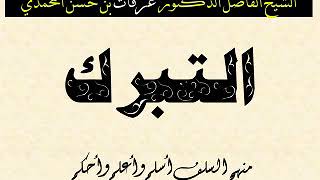 الشيخ الفاضل الدكتور عرفات بن حسن المحمدي
التبرك
منهج السلف أسلم وأعلم وأحكم